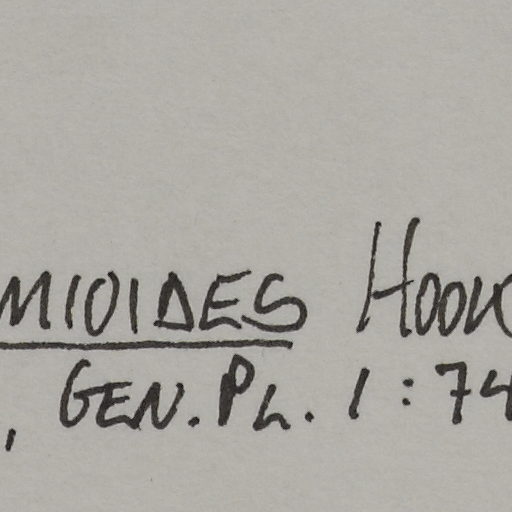 MIOIDES HOOK
, GEN. PL. 1:74